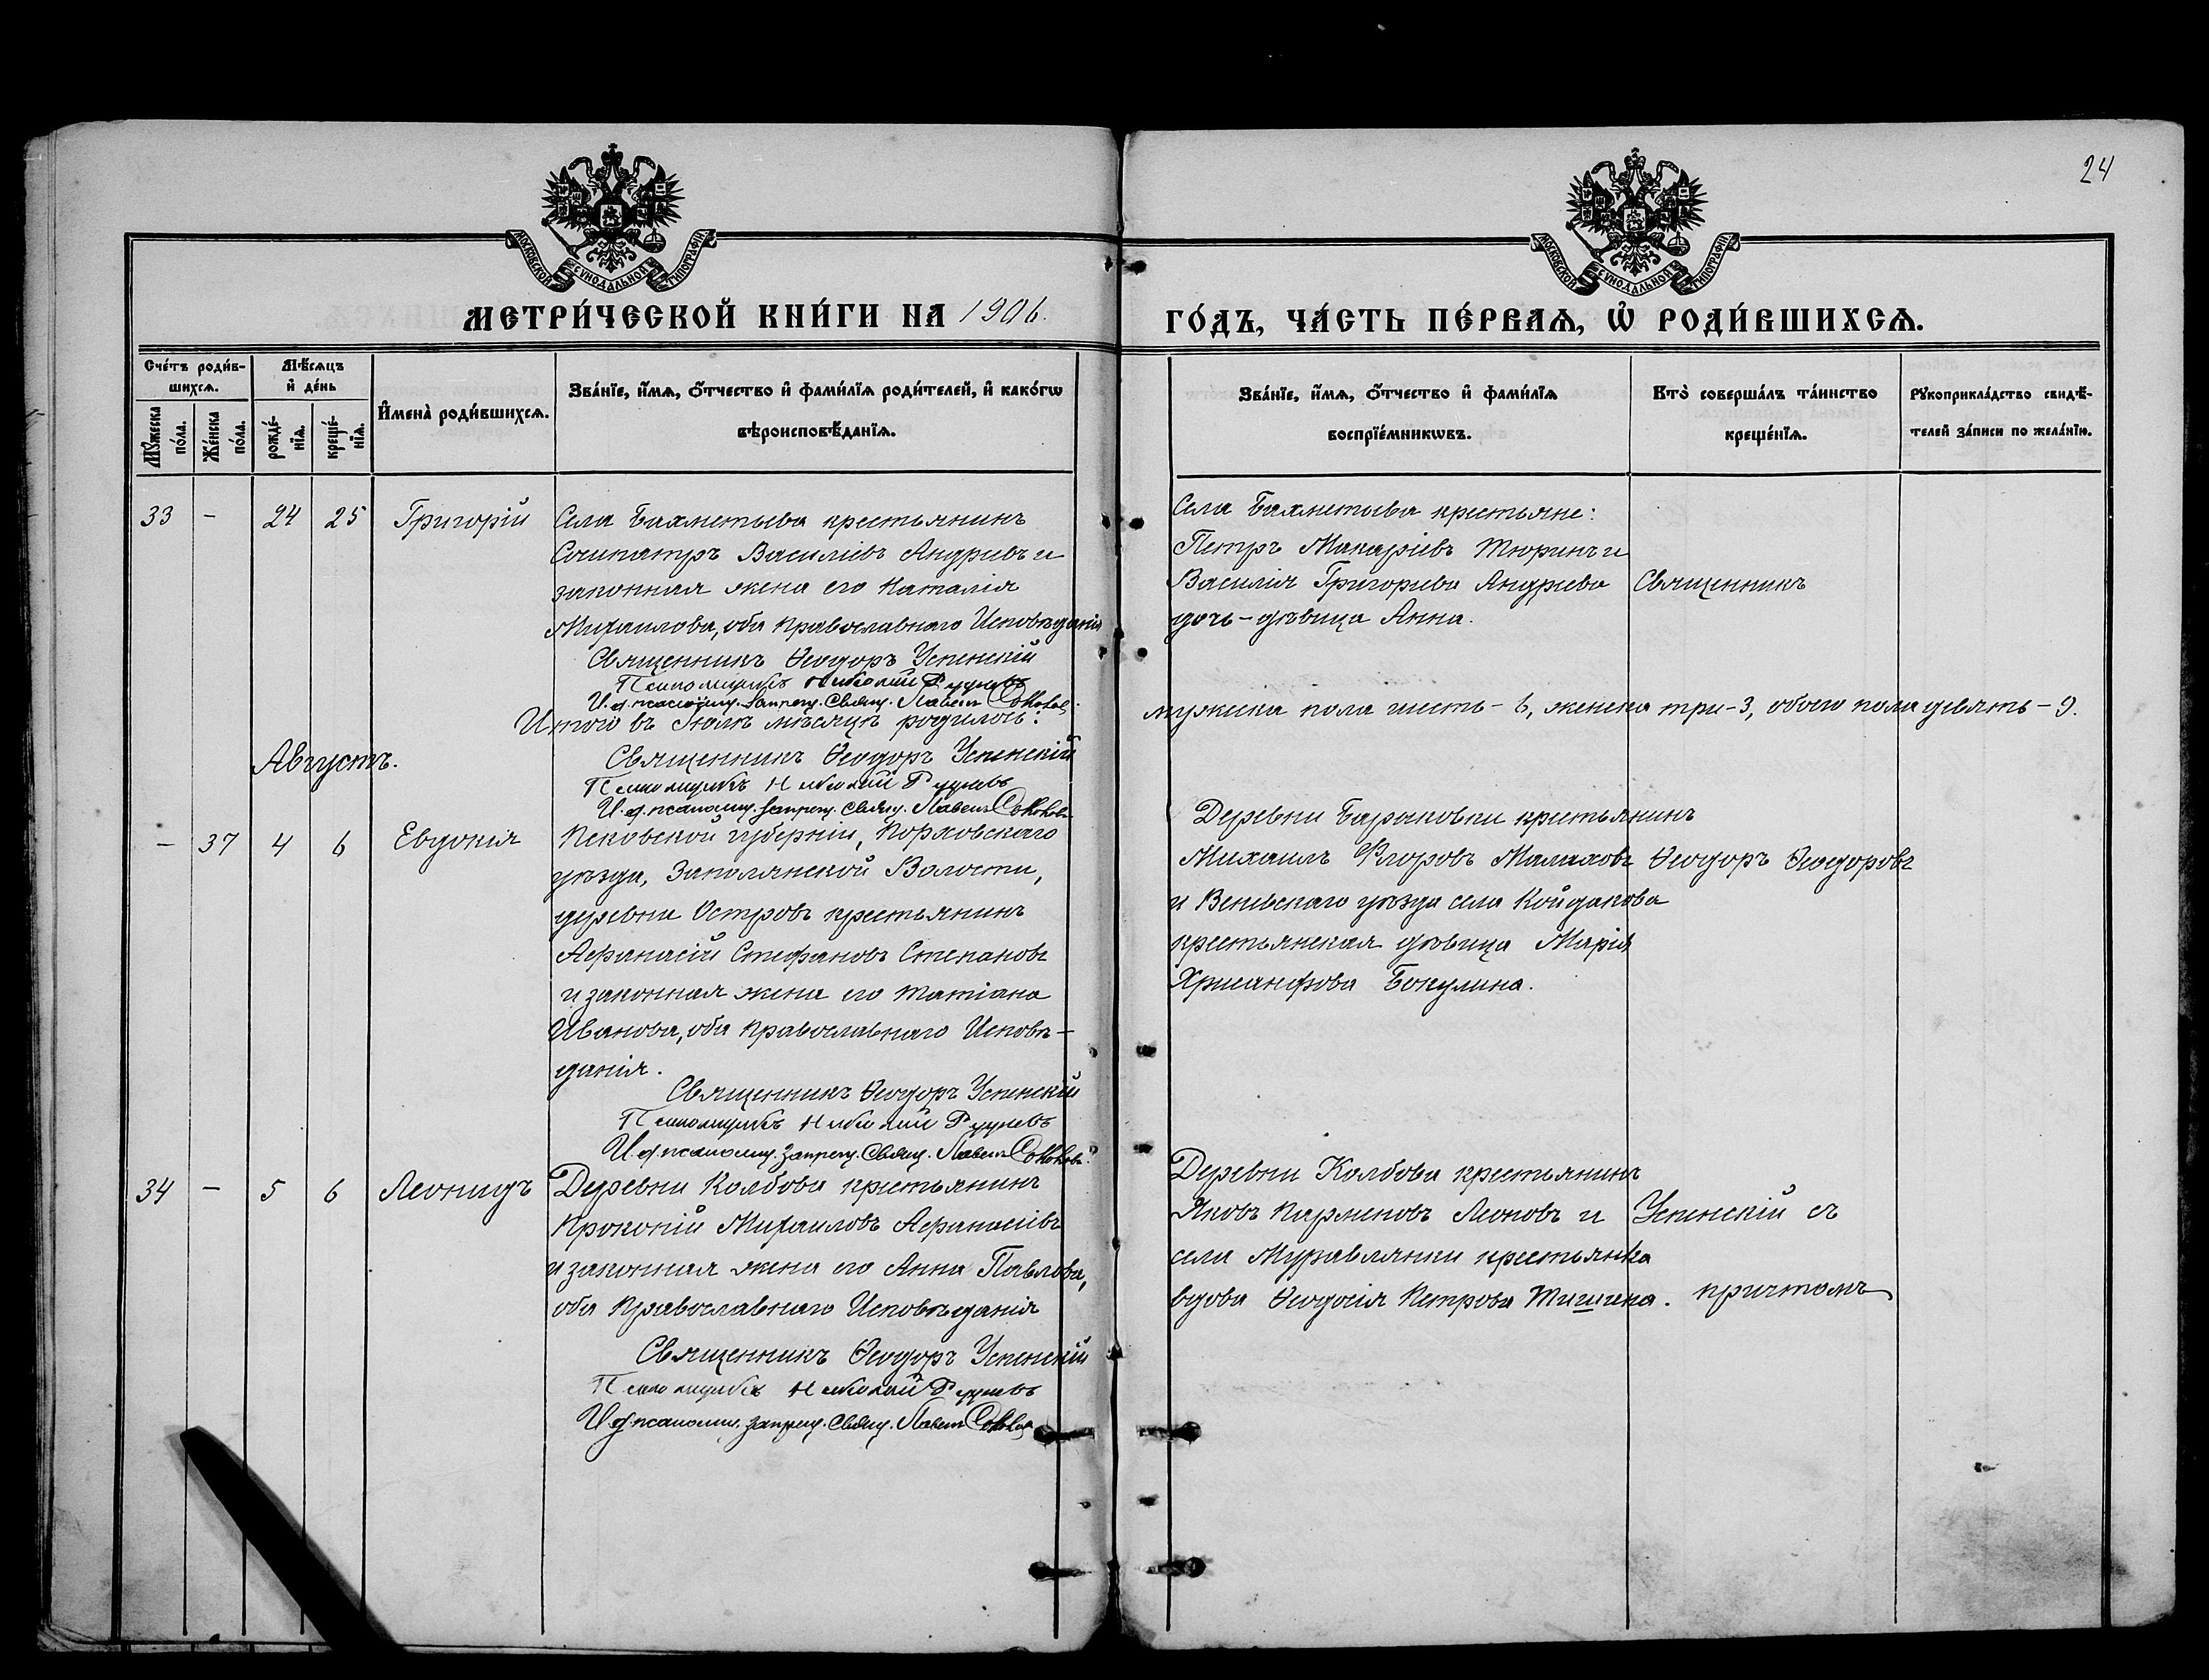 24
МОСКОВСКОЙ СѴНОДАЛЬНОЙ ТИПОГРАФІИ
МОСКОВСКОЙ СѴНОДАЛЬНОЙ ТИПОГРАФІИ
МЕТРИ́ЧЕСКОЙ КНИ́ГИ НА 1906.
ГО́ДЪ, ЧА́СТЬ ПЕ́РВАѦ, Ѡ҆ РОДИ́ВШИХСѦ.
Сче́тъ роди́в-
шихсѧ.
Мꙋ́жеска по́ла.
Же́нска по́ла.
Мѣ́сѧцъ
и҆ де́нь
рожде́-нїѧ.
креще́-нїѧ.
И҆мена̀ роди́вшихсѧ.
Зва́нїе, и҆́мѧ, ѻ҆́тчество и҆ фами́лїѧ роди́телей, и҆ како́гѡ
вѣроисповѣ́данїѧ.
Зва́нїе, и҆́мѧ, ѻ҆́тчество и҆ фами́лїѧ
воспрїе́мникѡвъ.
Кто̀ соверша́лъ та́инство
креще́нїѧ.
Рꙋкоприкла́дство свидѣ́-
телей за́писи по жела́нїю.
33 - 24 25 Григорій
Села Бахметьева крестьянинъ
Сосипатръ Василіевъ Андреевъ и
законная жена его Наталія
Михаилова, оба Православнаго Исповѣданія
Священникъ Ѳеодоръ Успенскій
Псаломщикъ Николай Рудневъ
И. д. псаломщ. запрещ. Свящ. Павелъ Соколовъ
Села Бахметьева крестьяне:
Петръ Макаріевъ Тюринъ и
Василія Григорьева Андреева
дочь - дѣвица Анна.
Священникъ
Итого въ Іюлѣ мѣсяцѣ родилось:
мужеска пола шесть - 6, женска три - 3, обоего пола девять - 9.
Священникъ Ѳеодоръ Успенскій
Псаломщикъ Николай Рудневъ
И. д. псаломщ. запрещ. Свящ. Павелъ Соколовъ
Августъ.
- 37 4 6 Евдокія
Псковской губерніи, Порховскаго
уѣзда, Заполянской Волости,
деревни Островъ крестьянинъ
Аѳанасій Стефановъ Степановъ
и законная жена его Татіана
Иванова, оба Православнаго Исповѣ-
данія.
Священникъ Ѳеодоръ Успенскій
Псаломщикъ Николай Рудневъ
И. д. псаломщ. запрещ. Свящ. Павелъ Соколовъ
Деревни Барыковки крестьянинъ
Михаилъ Флоровъ Малаховъ
и Веневскаго уѣзда села Койдакова
крестьянская дѣвица Марія
Хрисанфова Бокулина.
Ѳеодоръ Ѳеодоровъ
34 - 5 6 Леонидъ
Деревни Колбова крестьянинъ
Прокопій Михаиловъ Афанасіевъ
и законная жена его Анна Павлова,
оба Православнаго Исповѣданія
Священникъ Ѳеодоръ Успенскій
Псаломщикъ Николай Рудневъ
И. д. псаломщ. запрещ. Свящ. Павелъ Соколовъ
Деревни Колбова крестьянинъ
Яковъ Парменовъ Леоновъ и
села Муравлянки крестьянка
вдова Ѳеодосія Петрова Тишина.
Успенскій съ
причтомъ